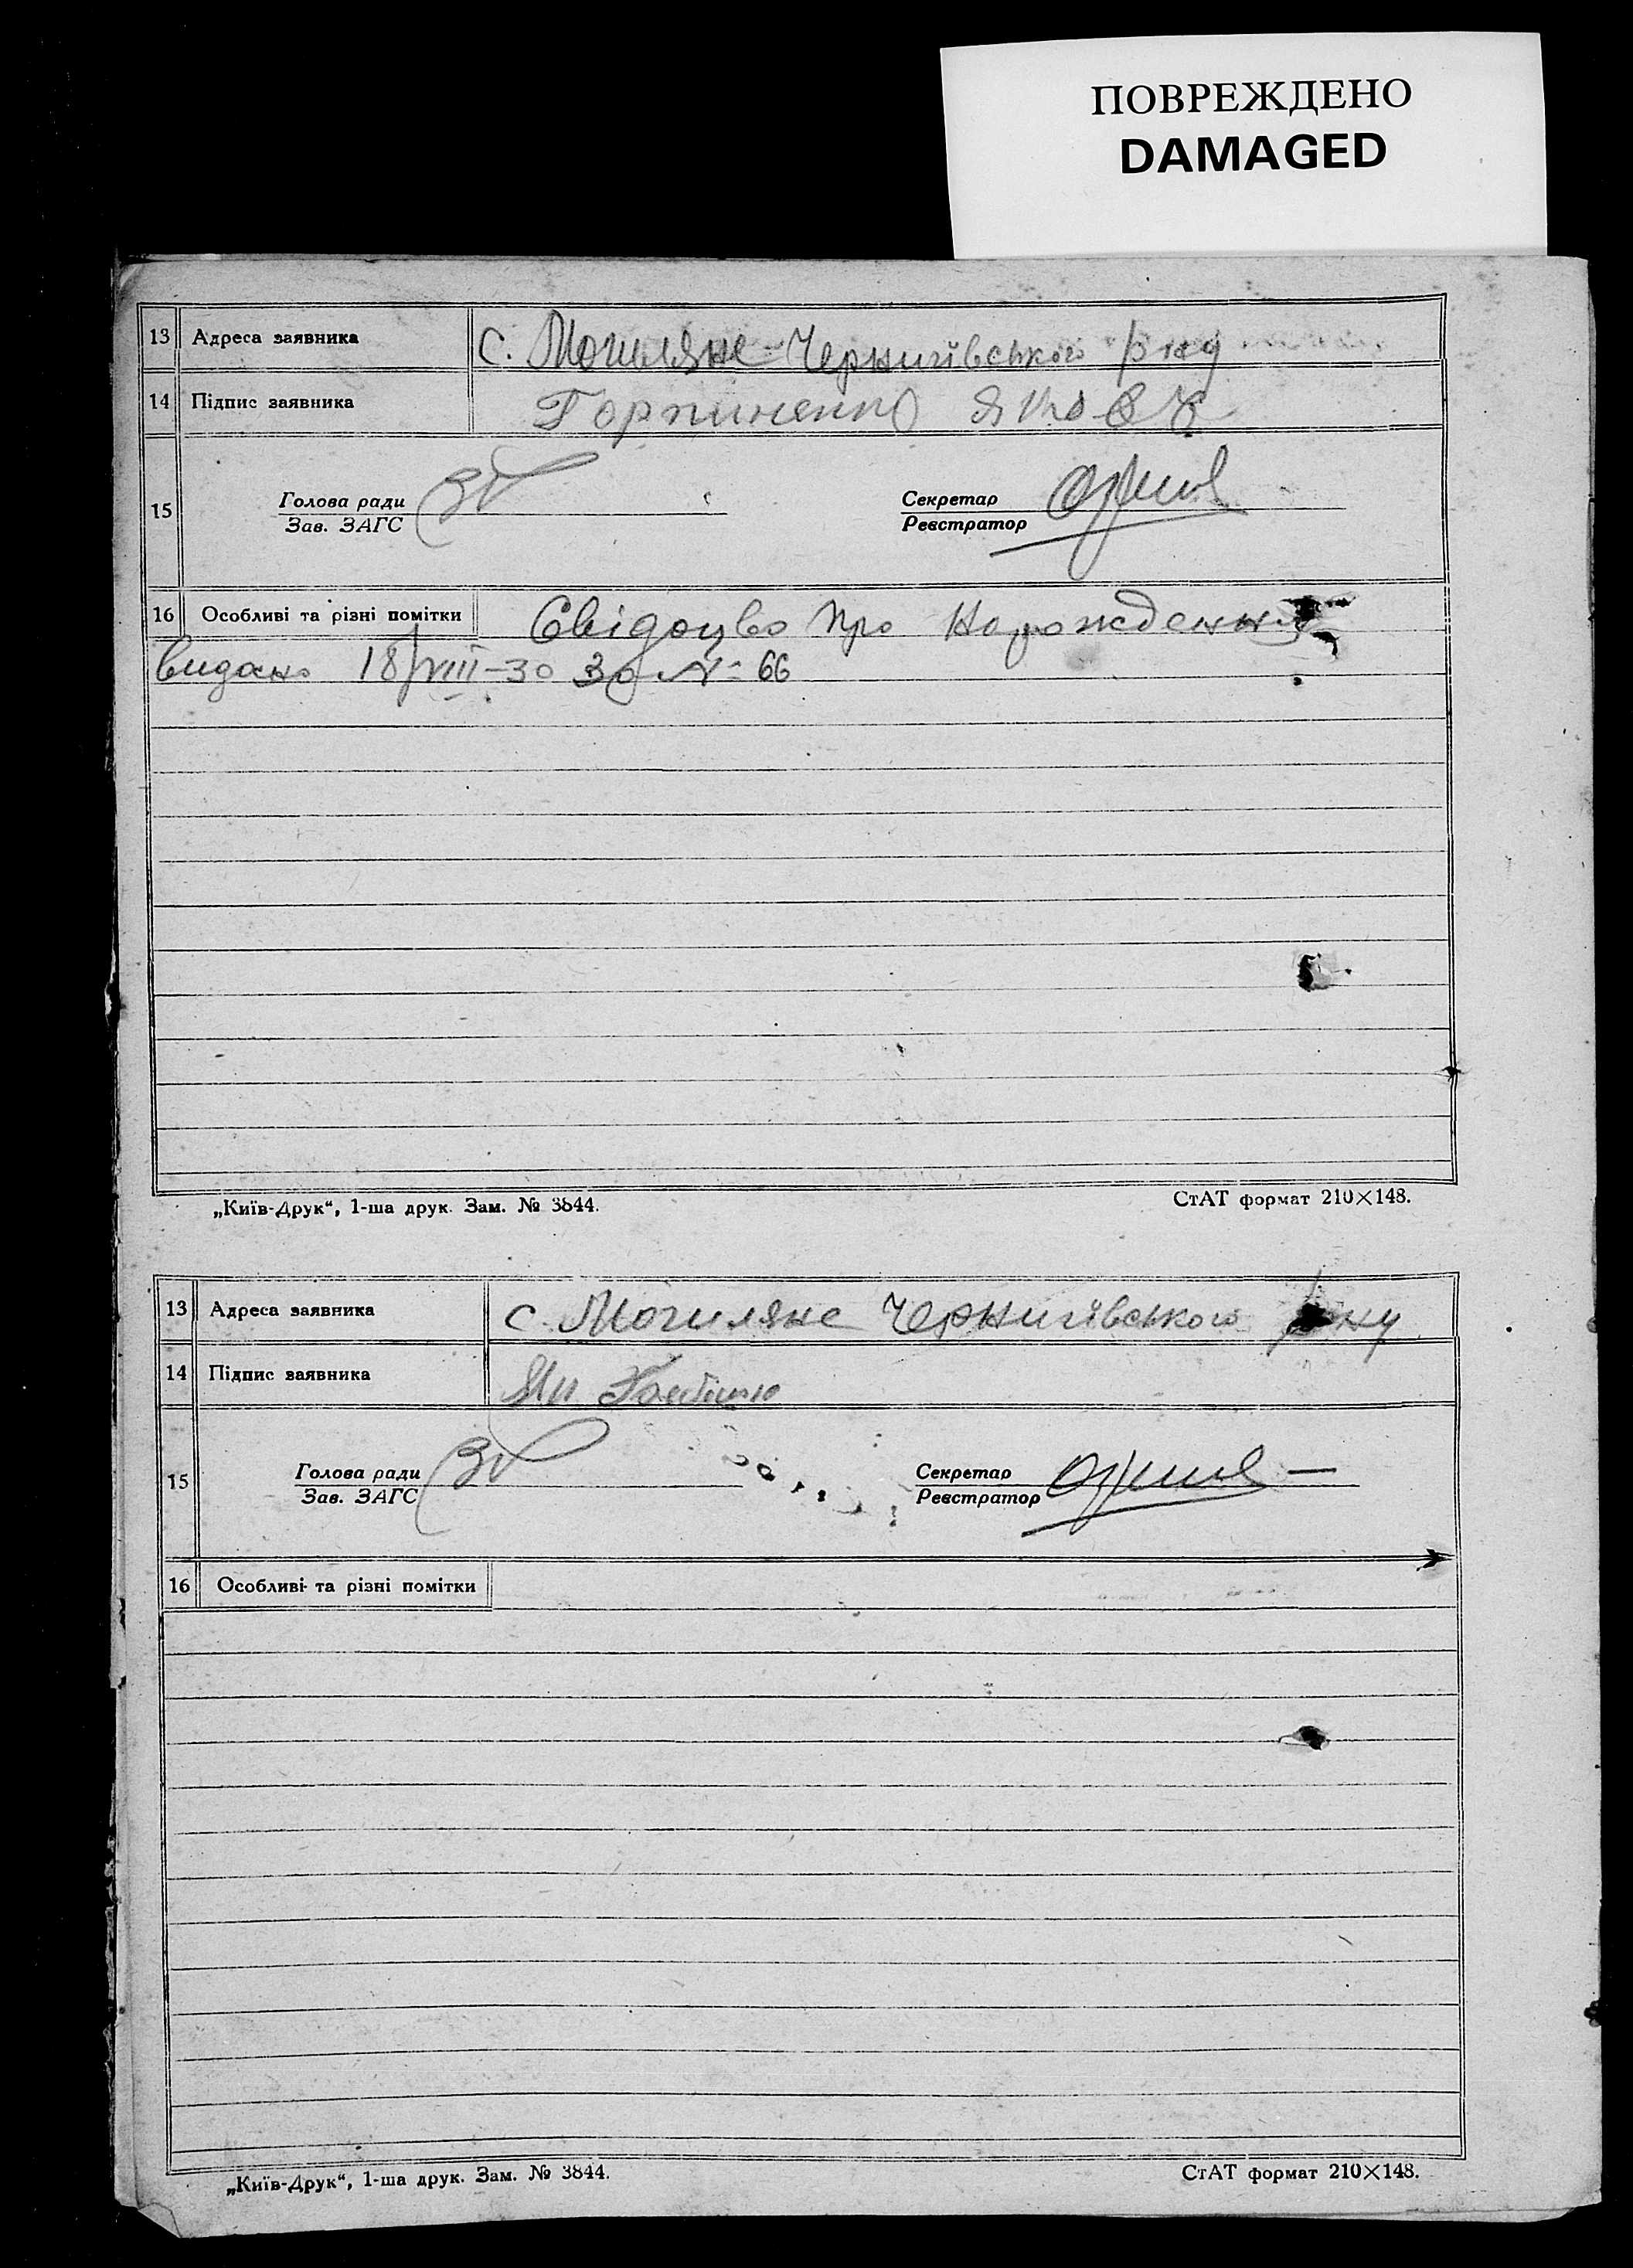 ПОВРЕЖДЕНО
DAMAGED
13 Адреса заявника с. Могиляне Чернигівського р-ну
14 Підпис заявника Горпиненко
15 Голова ради Секретар
Зав. ЗАГС Реєстратор
16 Особливі та різні помітки Свідоцво про народження
видано 18/VIII-30 за № 66
„Київ-Друк“, 1-ша друк. Зам. № 3844. СтАТ формат 210×148.
13 Адреса заявника с. Могиляне Чернигівського р-ну
14 Підпис заявника
15 Голова ради Секретар
Зав. ЗАГС Реєстратор
16 Особливі та різні помітки
„Київ-Друк“, 1-ша друк. Зам. № 3844. СтАТ формат 210×148.